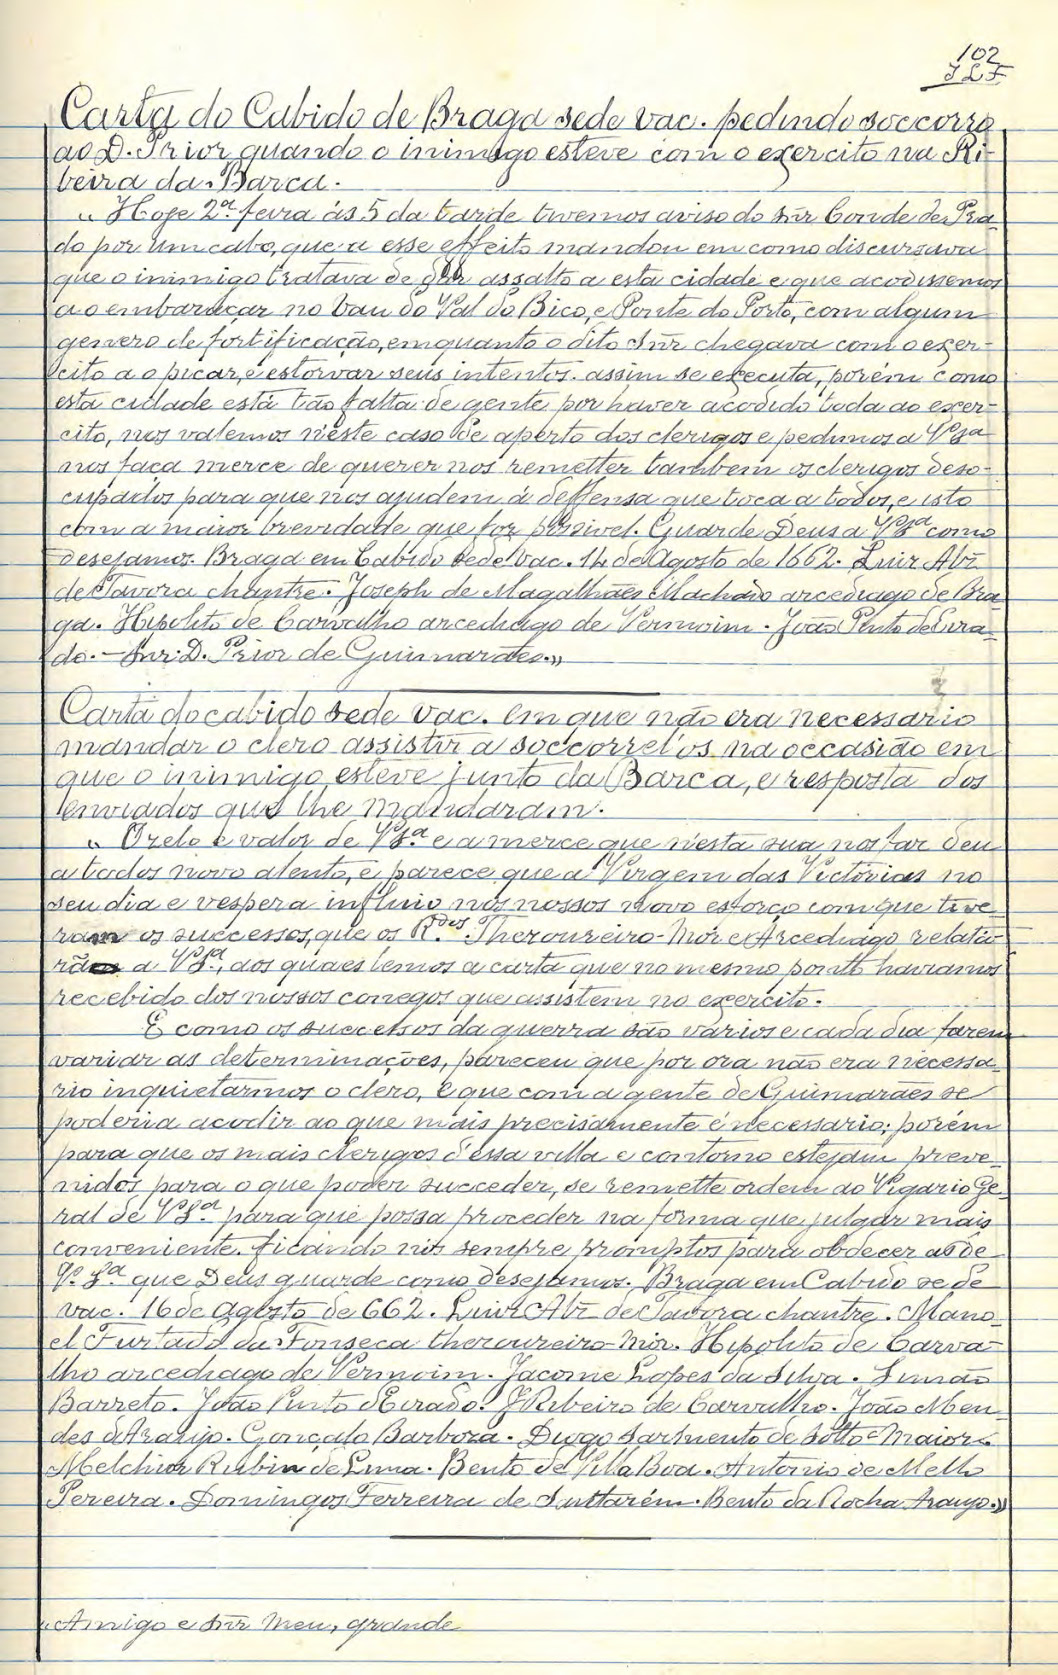 102
JLF
Carta do Cabido de Braga sede vac. pedindo soccorro
ao D. Prior quando o inimigo esteve com o exercito na Ri-
beira da Barca.
"Hoje 2ª feira ás 5 da tarde tivemos aviso do Snr Conde de Pra-
do por um cabo, que a esse effeito mandou em como discursava
que o inimigo tratava de dar assalto a esta cidade e que acodissemos
a o embaraçar no Vau do Val do Bico, e Ponte do Porto, com algum
genero de fortificação, emquanto o dito Snr chegava com o exer-
cito a o picar, e estorvar seus intentos. assim se executa, porém como
esta cidade está tão falta de gente por haver acodido toda ao exer-
cito, nos valemos n'este caso de aperto dos clerigos e pedimos a VSa
nos faça merce de querer nos remetter tambem os clerigos deso-
cupados para que nos ajudem á deffensa que toca a todos, e isto
com a maior brevidade que for possivel. Guarde Deus a VSª como
desejamos. Braga em Cabido sede vac. 14 de Agosto de 1662. Luiz Abr
de Tavora chantre. Joseph de Magalhães Machado arcediago de Bra-
ga. Hipolito de Carvalho arcediago de Vermoim. João Pinto de Eira-
do. — Snr. D. Prior de Guimarães.»
Carta do cabido sede vac. em que não era necessario
mandar o clero assistir a soccorrel'os na occasião em
que o inimigo esteve junto da Barca, e resposta dos
enviados que lhe mandaram.
"O zelo e valor de VSª e a merce que n'esta sua nos faz deu
a todos novo alento, e parece que a Virgem das Victorias no
seu dia e vespera influio nos nossos novo esforço com que tive-
ram os successos, que os R.dos Thezoureiro-Mór e Arcediago relata-
rão a VSª, aos quaes lemos a carta que no mesmo ponto haviamos
recebido dos nossos conegos que assistem no exercito.
E como os successos da guerra são varios e cada dia fazem
variar as determinações, pareceu que por ora não era necessa-
rio inquietarmos o clero, e que com a gente de Guimarães se
poderia acodir ao que mais precisamente é necessario; porém
para que os mais clerigos d'essa villa e contorno estejam preve-
nidos para o que poder succeder, se remette ordem ao Vigario Ge-
ral de VSª para que possa proceder na forma que julgar mais
conveniente. ficando nós sempre promptos para obdecer as de
V. Sª que Deus guarde como desejamos. Braga em Cabido sede
vac. 16 de agosto de 662. Luiz Abr de Tavora chantre. Mano-
el Furtado da Fonseca thezoureiro-mór. Hipolito de Carva-
lho arcediago de Vermoim. Jacome Lopes da Silva. Simão
Barreto. João Pinto d'Eirado. J Ribeiro de Carvalho. João Men-
des d'Araujo. Gonçalo Barboza. Diogo Sarmento de Sotto-Maior.
Melchior Rubin de Lima. Bento de Villa Boa. Antonio de Mello
Pereira. Domingos Ferreira de Santarém. Bento da Rocha Araujo.»
"Amigo e Snr meu, grande